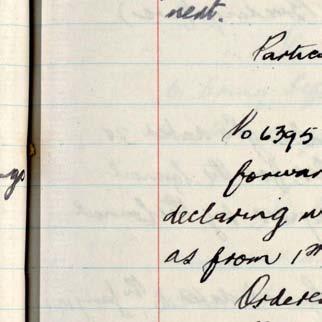 next.
Partic
No 6395
forwar
declaring
as from 1st
Ordere